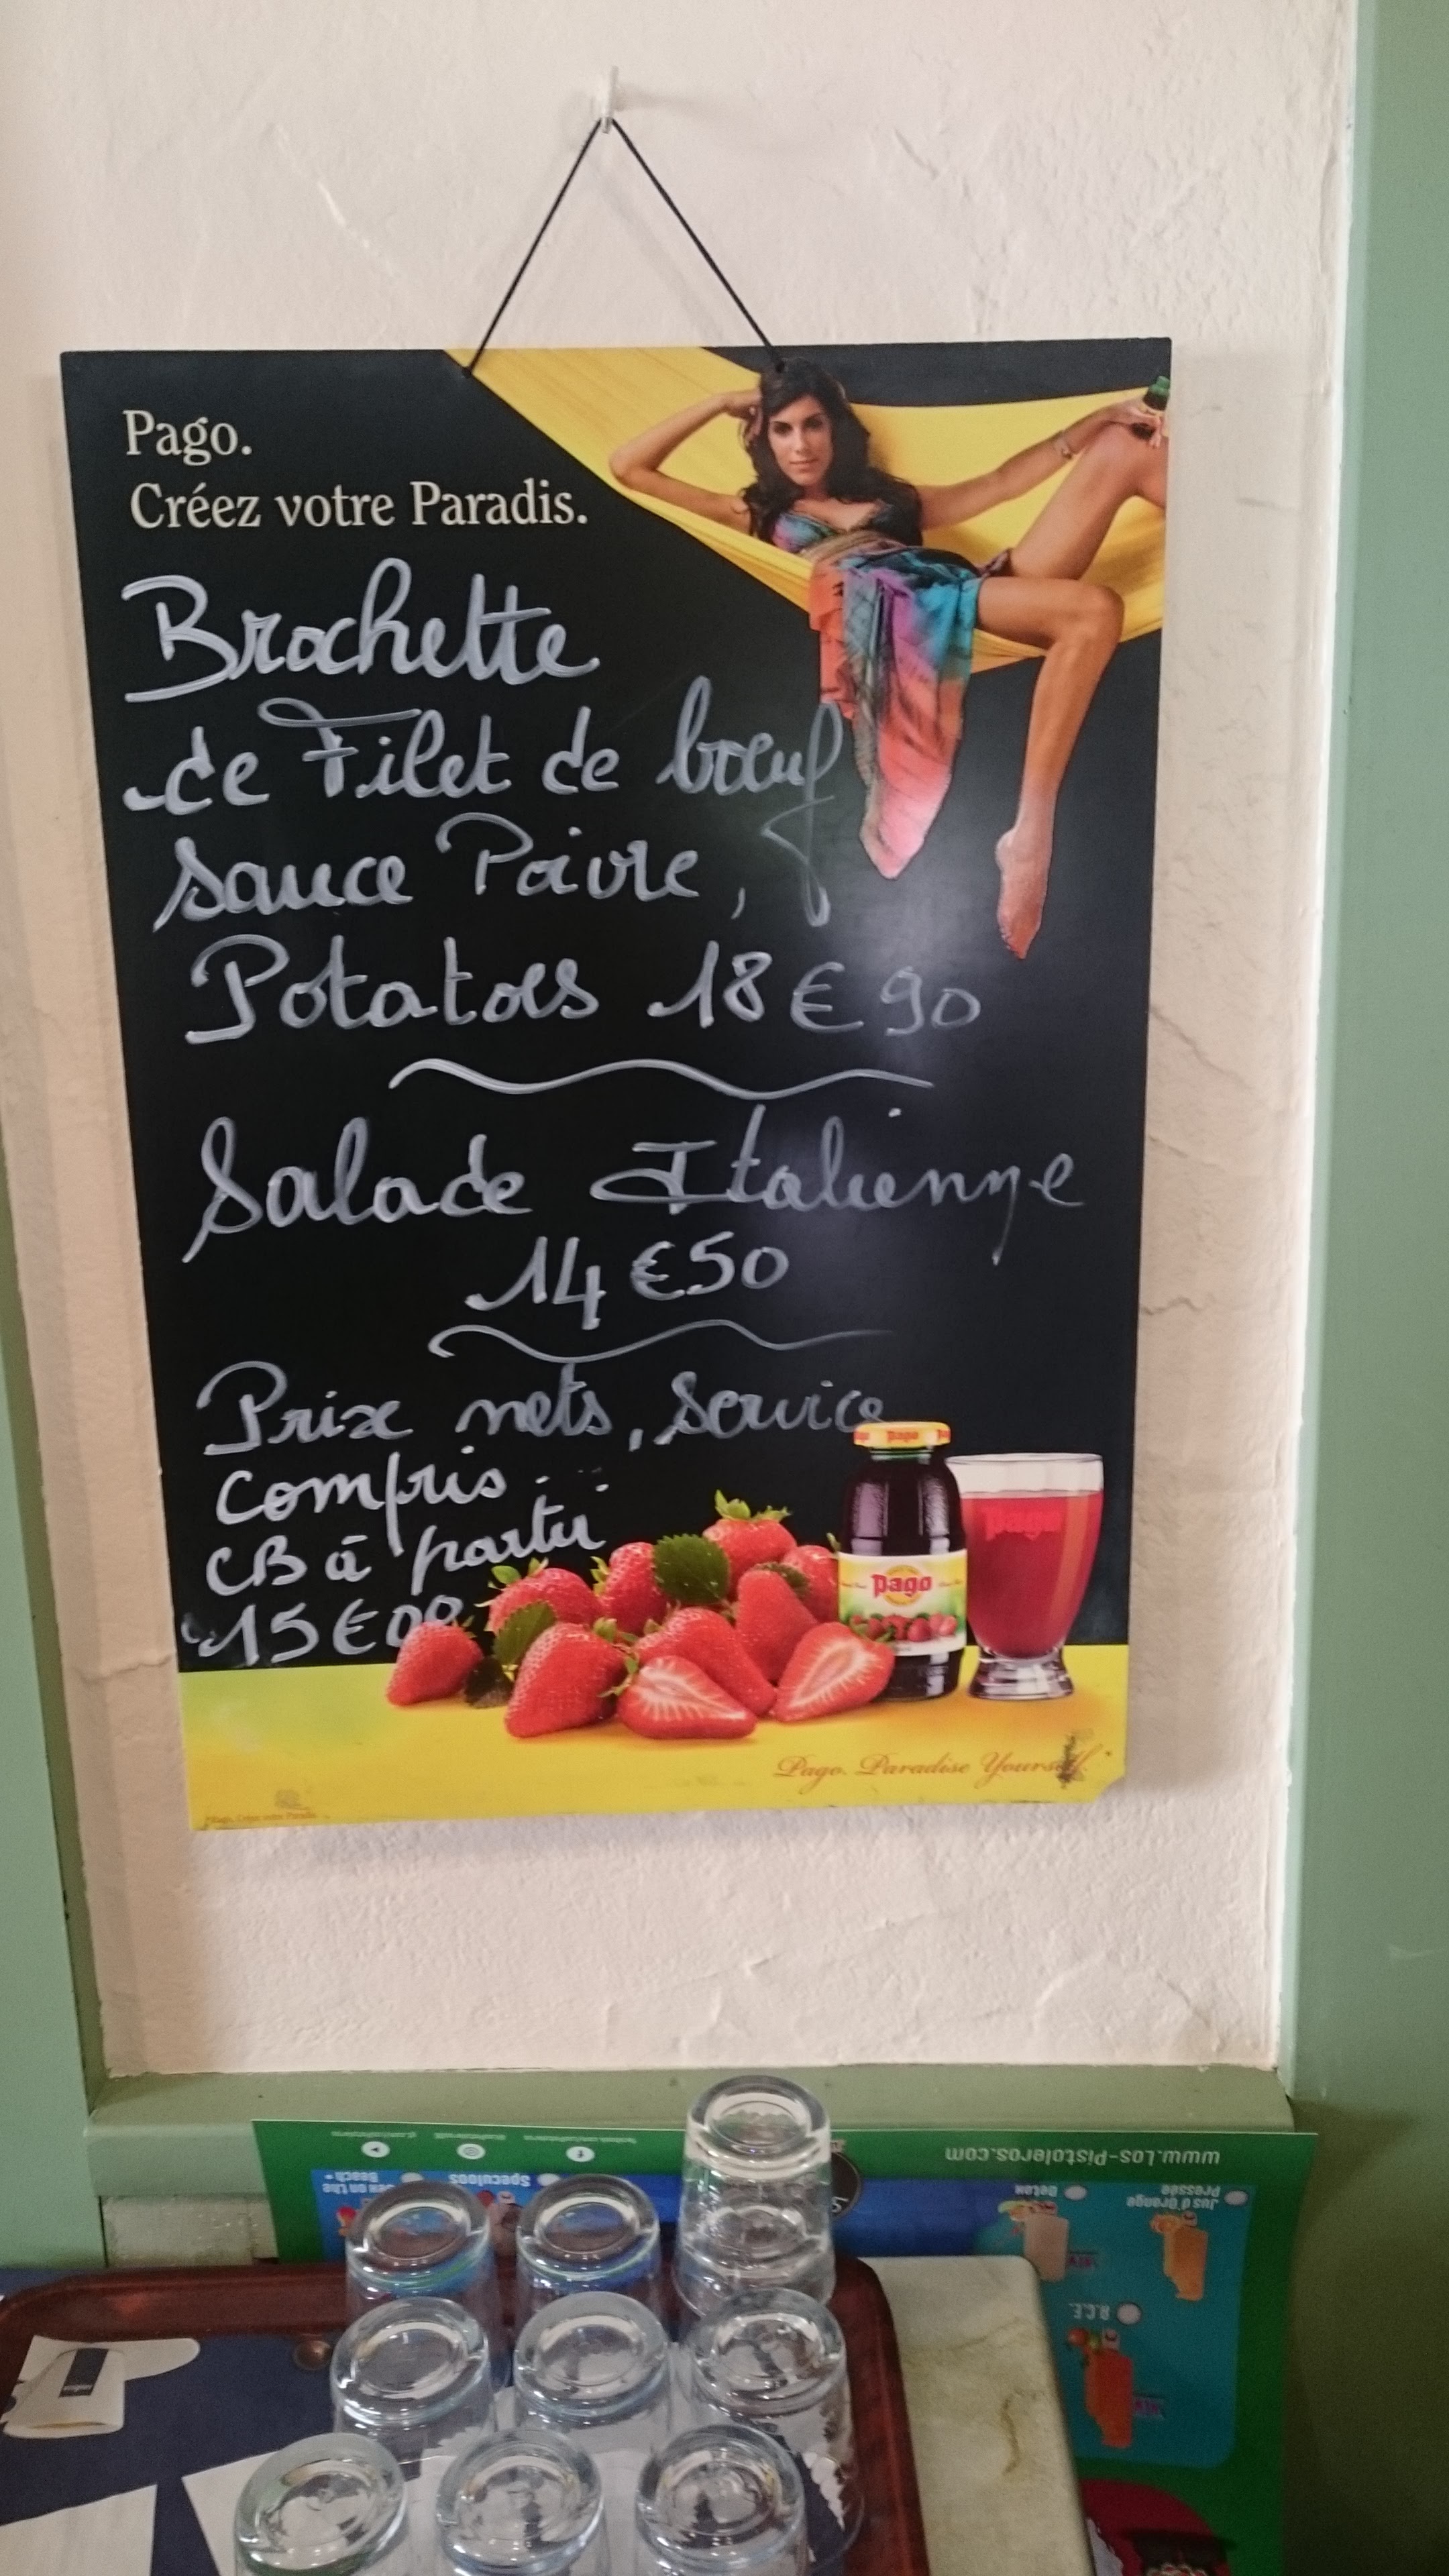 Pago.
Créez votre Paradis.
Brochette
de Filet de bœuf
sauce Poivre,
Potatoes 18€90
Salade Italienne
14€50
Prix nets, service
compris.
CB à partir
15€00
pago
pago
Pago. Paradise Yourself.
Pago. Créez votre Paradis.
www.Los-Pistoleros.com
Speculoos
on the
Beach
Jus d'Orange
Pressée